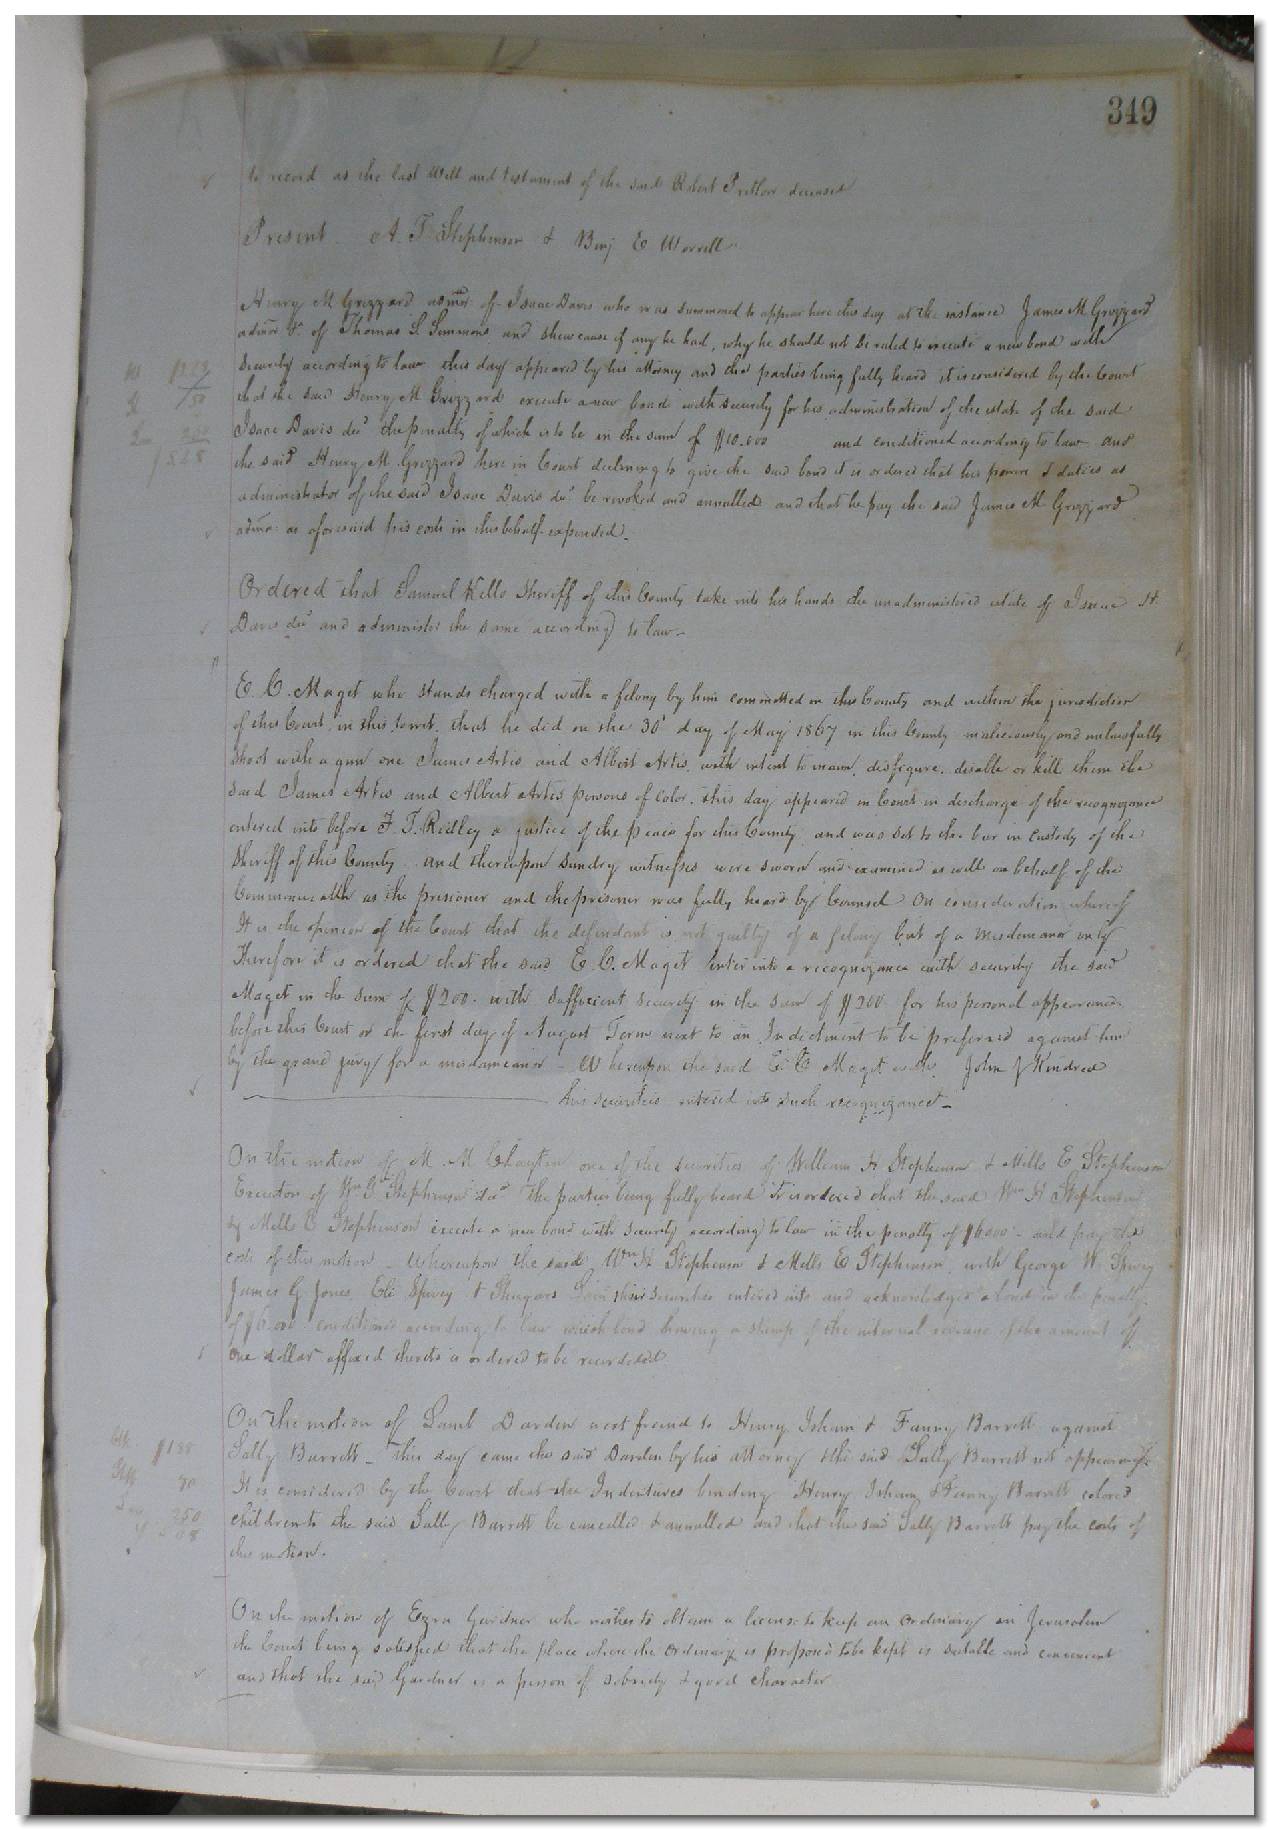 349
to record as the last Will and testament of the said Robert Pretlow deceased
Present A. T. Stephenson & Benj E Worrell
Henry M Grizzard admor of Isaac Davis who was summoned to appear here this day at the instance James M Grizzard
admor &c of Thomas L Simmons and shew cause if any he had, why he should not be ruled to execute a new bond with
security according to law this day appeared by his attorney and the parties being fully heard it is considered by the Court
that the said Henry M. Grizzard execute a new bond with security for his administration of the estate of the said
Isaac Davis decd the penalty of which is to be in the sum of $10.000 and conditioned according to law and
the said Henry M. Grizzard here in Court declining to give the said bond it is ordered that his powers & duties as
administrator of the said Isaac Davis decd be revoked and annulled and that he pay the said James M Grizzard
admor as aforesaid his costs in this behalf expended.
Ordered that Samuel Kello Sheriff of this County take into his hands the unadministered estate of Isaac H.
Davis decd and administer the same according to law.
E. C. Maget who stands charged with a felony by him committed in this County and within the jurisdiction
of this Court in this, towit, that he did on the 30th day of May 1867 in this County maliciously and unlawfully
shoot with a gun one James Artis and Albert Artis with intent to maim, disfigure, disable or kill them the
said James Artis and Albert Artis persons of color. this day appeared in Court in discharge of the recognizance
entered into before F. T. Ridley a justice of the peace for this County, and was set to the bar in custody of the
Sheriff of this County. and thereupon sundry witnesses were sworn and examined as well on behalf of the
Commonwealth as the prisoner and the prisoner was fully heard by Counsel On consideration whereof
It is the opinion of the Court that the defendant is not guilty of a felony but of a misdemanor only
Therefore it is ordered that the said E. C. Maget enter into a recognizance with security the said
Maget in the sum of $200. with sufficient security in the sum of $200 for his personal appearance
before this Court on the first day of August Term next to an Indictment to be preferred against him
by the grand jury for a misdameanor - Whereupon the said E. C Maget with John J Kindred
his securities entered into such recognizance.
On the motion of M. M Chayten one of the securities of William H Stephenson & Mills E Stephenson
Executor of Wm G Stephenson decd The parties being fully heard It is ordered that the said Wm H Stephenson
& Mills E Stephenson execute a new bond with security according to law in the penalty of $6000 - and pay the
costs of this motion - Whereupon the said Wm H Stephenson & Mills E Stephenson, with George W. Spivey
James G Jones, Eli Spivey & their securities entered into and acknowledged a bond in the penalty
of $6.000 conditioned according to law which bond having a stamp of the internal revenue of the amount of
one dollar affixed thereto is ordered to be recorded
On the motion of Lamb Darden next friend to Henry, Isham & Fanny Barrett against
Sally Barrett - this day came the said Darden by his attorney & the said Sally Barrett not appearing.
It is considered by the Court that the Indentures binding Henry Isham & Fanny Barrett colored
children to the said Sally Barrett be cancelled & annulled and that the said Sally Barrett pay the costs of
this motion.
On the motion of Ezra Gardner who wishes to obtain a license to keep an ordinary in Jerusalem
the Court being satisfied that the place where the ordinary is proposed to be kept is suitable and convenient
and that the said Gardner is a person of sobriety & good character